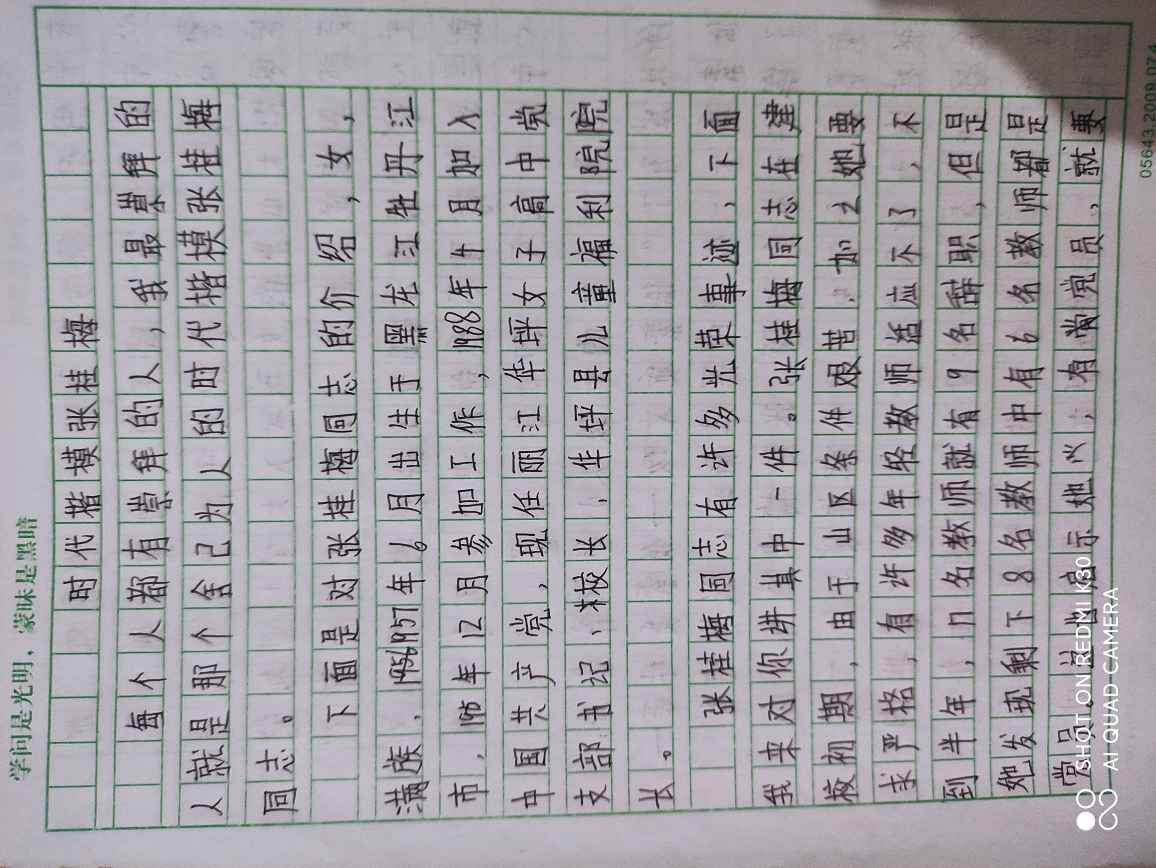 学问是光明，蒙昧是黑暗
时代楷模张桂梅
每个人都有崇拜的人，我最崇拜的
人就是那个舍己为人的时代楷模张桂梅
同志。
下面是对张桂梅同志的介绍，女，
满族，1957年6月出生于黑龙江牡丹江
市，1975年12月参加工作，1988年4月加入
中国共产党，现任丽江华坪女子高中党
支部书记、校长，华坪县儿童福利院院
长。
张桂梅同志有许多光荣事迹，下面
我来对你讲其中一件。张桂梅同志在建
校初期，由于山区条件艰苦，加之她要
求严格，有许多年轻教师适应不了，不
到半年，17名教师就有9名辞职，但是
她发现剩下8名教师中有6名教师都是
党员，
示她以，有党员，就要
05643.2009.07.4
SHOT ON REDMI K30
AI QUAD CAMERA